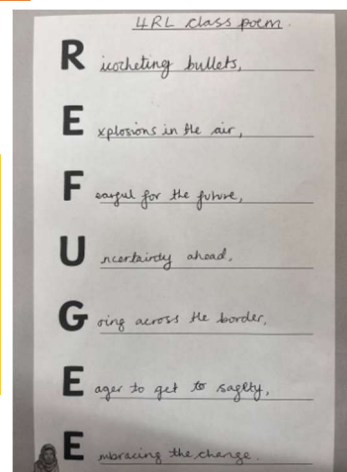 4RL class poem.
Ricocheting bullets,
Explosions in the air,
Fearful for the future,
Uncertainty ahead,
Going across the border,
Eager to get to safety,
Embracing the change.